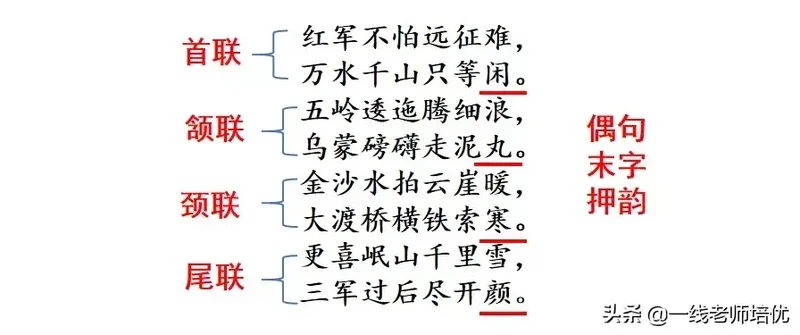 首联
红军不怕远征难，
万水千山只等闲。
颔联
五岭逶迤腾细浪，
乌蒙磅礴走泥丸。
颈联
金沙水拍云崖暖，
大渡桥横铁索寒。
尾联
更喜岷山千里雪，
三军过后尽开颜。
偶句
末字
押韵
头条 @一线老师培优